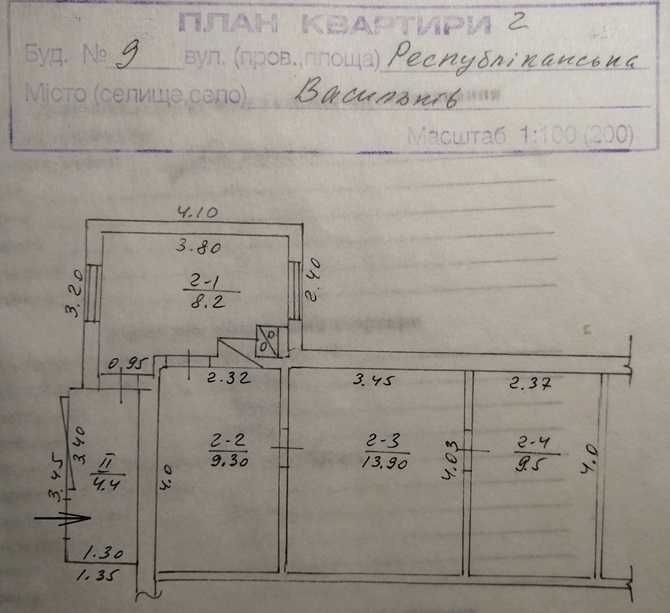 ПЛАН КВАРТИРИ 2
Буд. № 9 вул. (пров.,площа) Республіканська
Місто (селище,село) Васильків
Масштаб 1:100 (200)
4.10
3.80
3.20
2-1
8.2
2.40
0.95
2.32
3.45
2.37
3.45
3.40
II
4.4
4.0
2-2
9.30
2-3
13.90
4.03
2-4
9.5
4.0
1.30
1.35